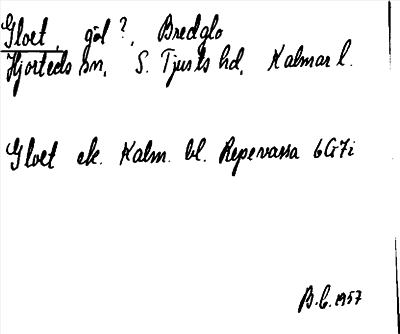 Gloet, göl?, Bredglo
Hjorteds sn, S. Tjusts hd, Kalmar l.
Gloet ek. Kalm. bl. Repenassa 6G7i
B.C. 1957